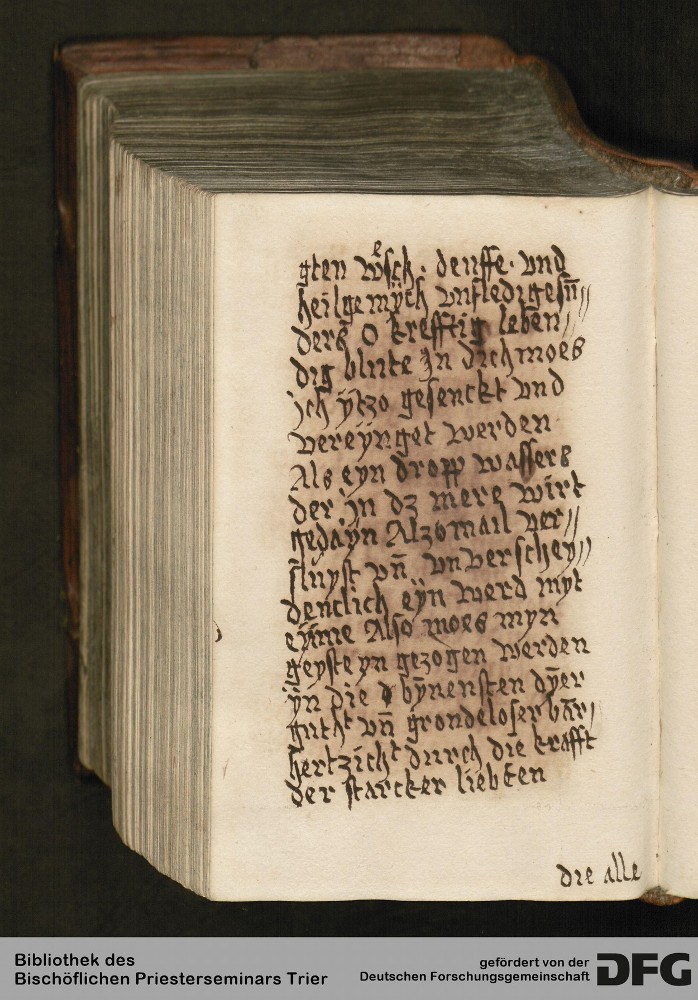 gten wͤsch · denffe · vnd
heilgemÿch vnfledigesn̄//
ders O krefftig leben//
dig blute Jn dich moes
ich ÿtzo gesenckt vnd
vereÿnget werden
Als eyn dropp wassers
der in dz mere wirt
gedayn Alzomail ver//
fluyst vn̄ vnverschey//
dentlich eÿn werd myt
eyme Also moes myn
geyst eyn gezogen werden
ÿn die bÿnensten dÿer
gutht vn̄ grondeloser bār/
hertzicht durch die krafft
der starcker liebten
die alle
Bibliothek des
Bischöflichen Priesterseminars Trier
gefördert von der
Deutschen Forschungsgemeinschaft
DFG